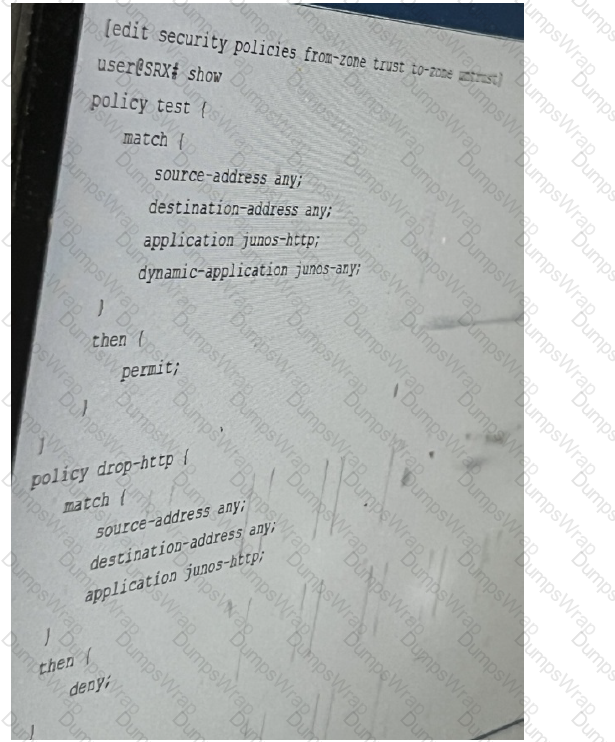 [edit security policies from-zone trust to-zone untrust]
user@SRX# show
policy test {
match {
source-address any;
destination-address any;
application junos-http;
dynamic-application junos-any;
}
then {
permit;
}
}
policy drop-http {
match {
source-address any;
destination-address any;
application junos-http;
}
then {
deny;
}
DumpsWrap